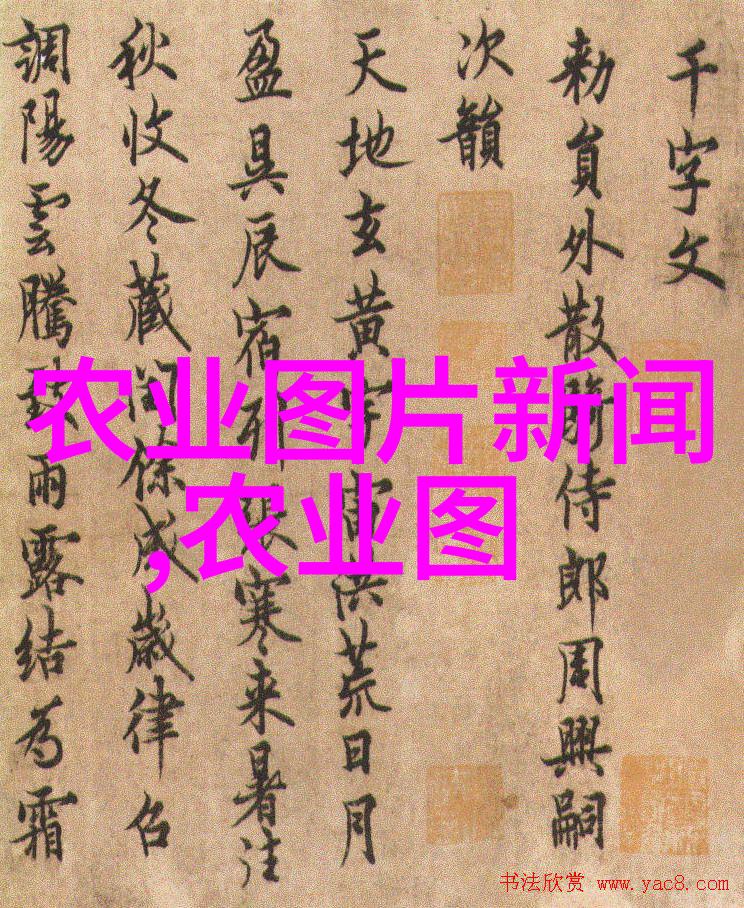 千字文
勅員外散騎侍郎周興嗣
次韻
天地玄黄宇宙洪荒日月
盈昃辰宿列張寒来暑往
秋收冬藏閏餘成歲律召
調陽雲騰致雨露結為霜
农业图片新闻
,农业图
书法欣赏 www.yac8.com